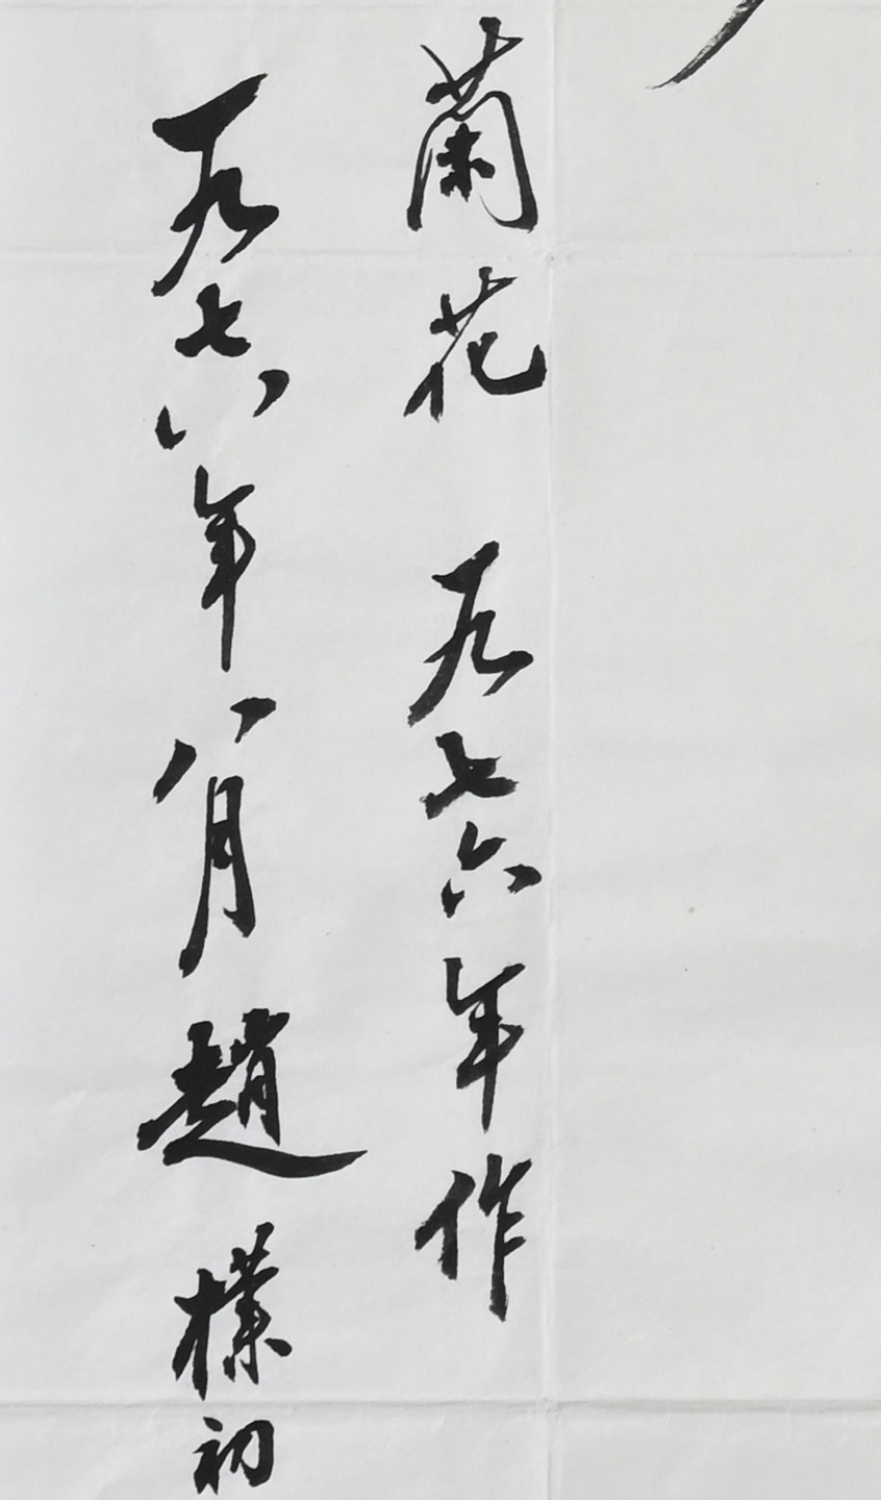 蘭花 一九七六年作
一九七六年八月趙樸初